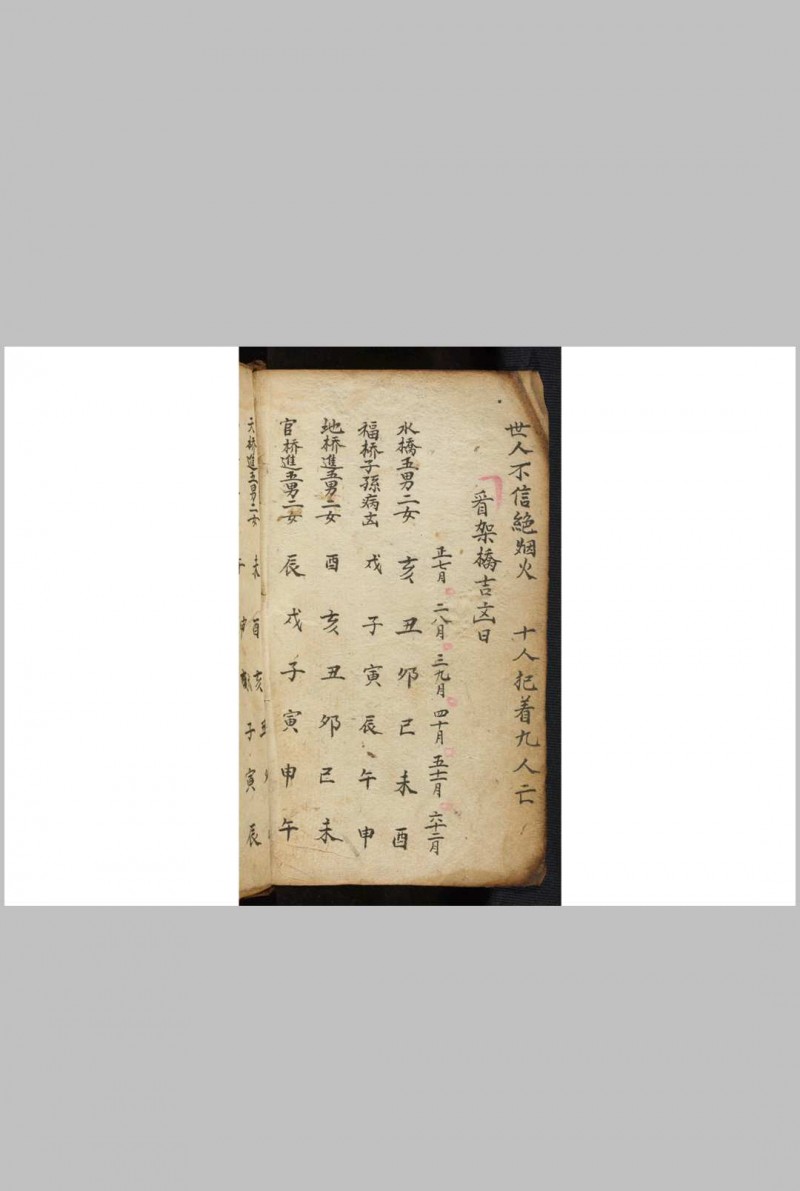 世人不信絶烟火 十人犯着九人亡
看架橋吉凶日
正七月 二八月 三九月 四十月 五十一月 六十二月
水橋五男二女 亥 丑 卯 巳 未 酉
福桥子孫病凶 戌 子 寅 辰 午 申
地桥進五男二女 酉 亥 丑 卯 巳 未
官桥進五男二女 辰 戌 子 寅 申 午
天桥進五男二女 未 酉 亥 丑
子 寅 辰